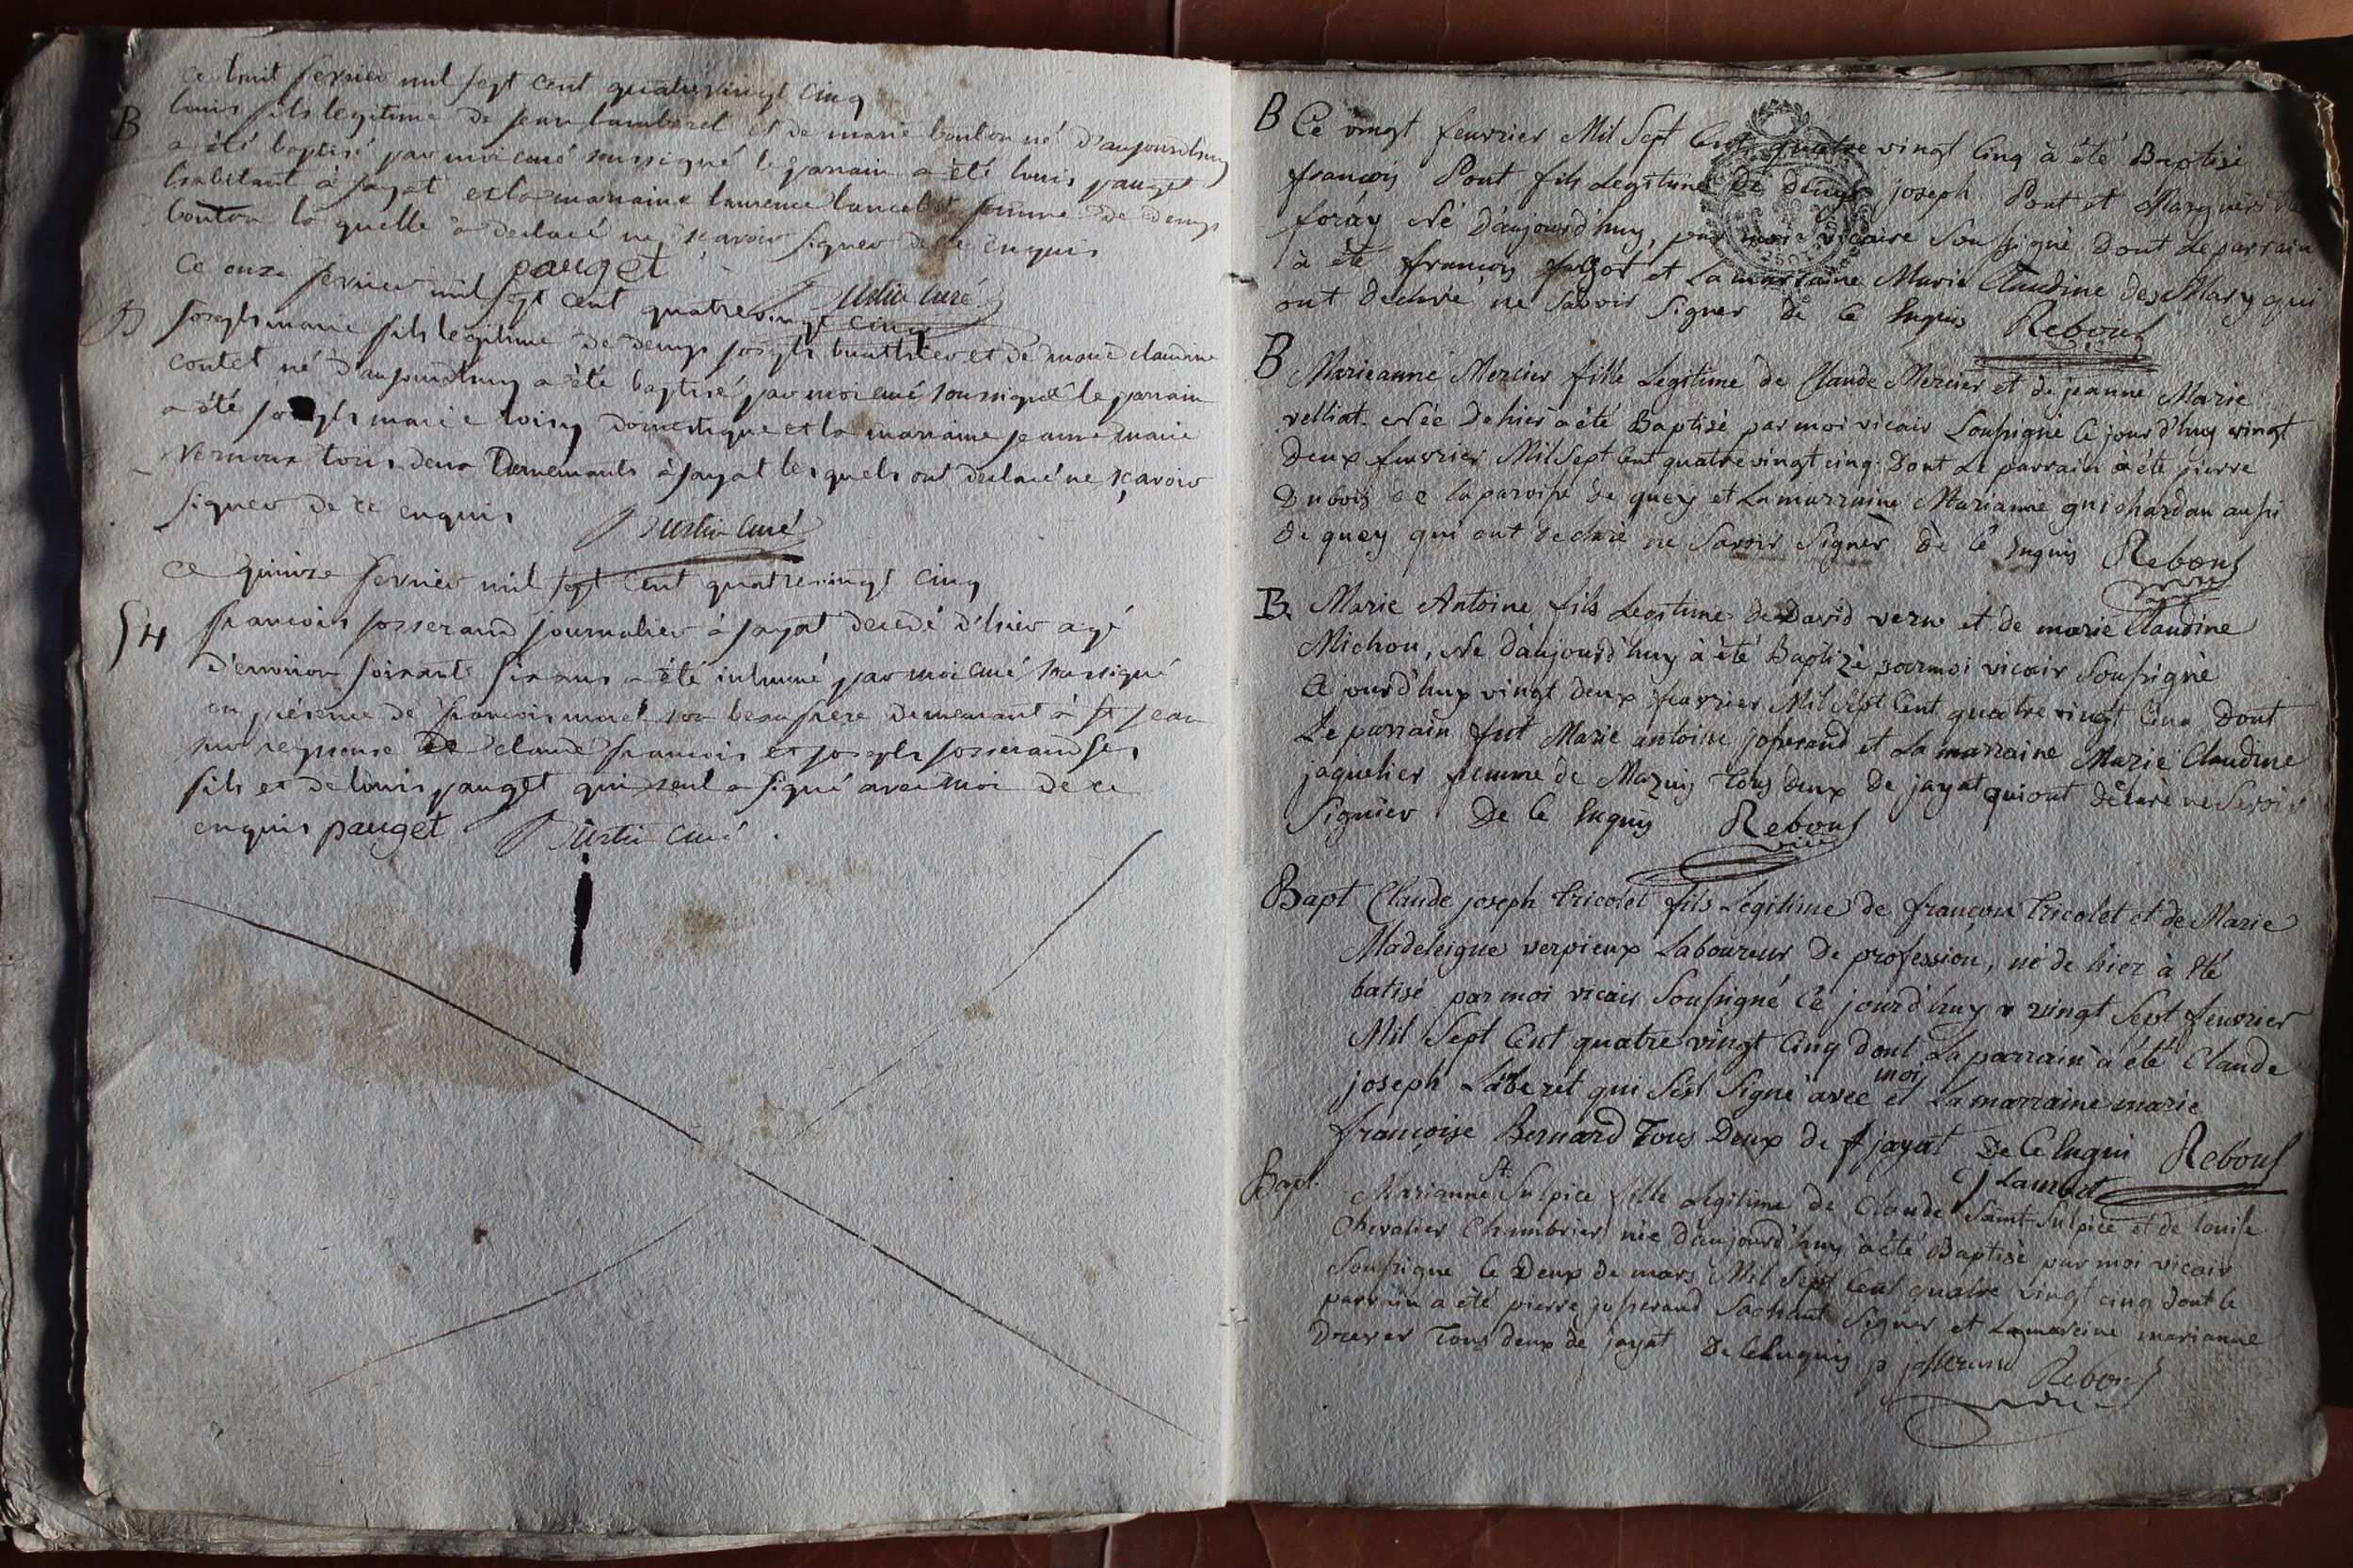 ce huit fevrier mil sept cent quatrevingt cinq
B louis fils legitime de jean lamberet et de marie bouton né d'aujourdhuy
a été baptisé par moi curé soussigné le parrain a été louis pauget
habitant à jayat et la marraine laurence lancelot femme de denys
bouton la quelle à declaré ne sçavoir signer de ce enquis
pauget curé
ce onze fevrier mil sept cent quatrevingt cinq
B joseph marie fils legitime de denys joseph buathier et de marie claudine
contet né d'aujourdhuy a été baptisé par moi curé soussigné le parrain
a été joseph marie loisy domestique et la marraine jeanne marie
vernoux tous deux demeurants à jayat lesquels ont declaré ne sçavoir
signer de ce enquis curé
ce quinze fevrier mil sept cent quatrevingt cinq
françois josserand journalier à jayat decedé d'hier agé
d'environ soixante six ans a été inhumé par moi curé soussigné
en présence de françois morel son beaufrere demeurant à st jean
sur reyssouse de claude françois et joseph josserand ses
fils et de louis pauget qui seul a signé avec moi de ce
enquis pauget curé
B Ce vingt feuvrier Mil Sept Cent quatre vingt Cinq à été Baptisé
françois Pont fils Legitime de denys joseph Pont et Marguerite
foray Né d'aujourd'huy, par moi vicaire Soussigné Dont Le parrain
à été françois et La marraine Marie Claudine desMary qui
ont declaré ne Savoir Signer de Ce Enquis Reboul
B Marieanne Mercier fille Legitime de Claude Mercier et de jeanne Marie
velliat Née de hier a été Baptisé par moi vicair Soussigné Ce jourd'huy vingt
Deux feuvrier Mil Sept Cent quatre vingt cinq. Dont Le parrain à été pierre
Dubois de la paroisse de quey et La marraine Marianne guichardan aussi
de quey qui ont declaré ne Savoir Signer de Ce Enquis Reboul
B. Marie Antoine fils Legitime de David verne et de marie Claudine
Michon, Ne d'aujourd'huy à été Baptizé par moi vicair Soussigné
Ce jourd'huy vingt deux feuvrier Mil Sept Cent quatre vingt Cinq Dont
Le parrain fut Marie antoine josserand et La marraine Marie Claudine
jaquelier femme de Mazuy Tous deux de jayat qui ont declaré ne Savoir
Signier De Ce Enquis Reboul
vic
Bapt Claude joseph tricolet fils Legitime de françois tricolet et de Marie
Madeleigne verpieux Laboureur De profession, né de hier à été
batisé par moi vicair Soussigné Ce jourd'huy vingt Sept feuvrier
Mil Sept Cent quatre vingt Cinq dont La parrain à été Claude
joseph Lamberet qui s'est Signé avec moi et La marraine marie
françoise Bernard Tous Deux de jayat De Ce Enqui Reboul
Cj Lambret
Bapt. Marianne St Sulpice fille Legitime de Claude Saint Sulpice et de louise
Chevalier Chambrier née d'aujourd'huy à été Baptisé par moi vicair
Soussigné Ce Deux de mars Mil Sept Cent quatre vingt cinq dont le
parrain a été pierre josserand Sachant Signer et La mareine marianne
Drever Tous deux de jayat De Ce Enquis p josserand Reboul
vic